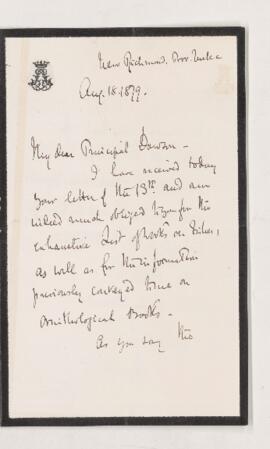 New Richmond. Prov. Quebec
Aug. 18. 1879.
My dear Principal Dawson -
I have received today
your letter of the 13th and am
indeed much obliged to you for the
exhaustive list of books on Fishes,
as well as for the information
previously conveyed to me on
Ornithological Books -
As you say the